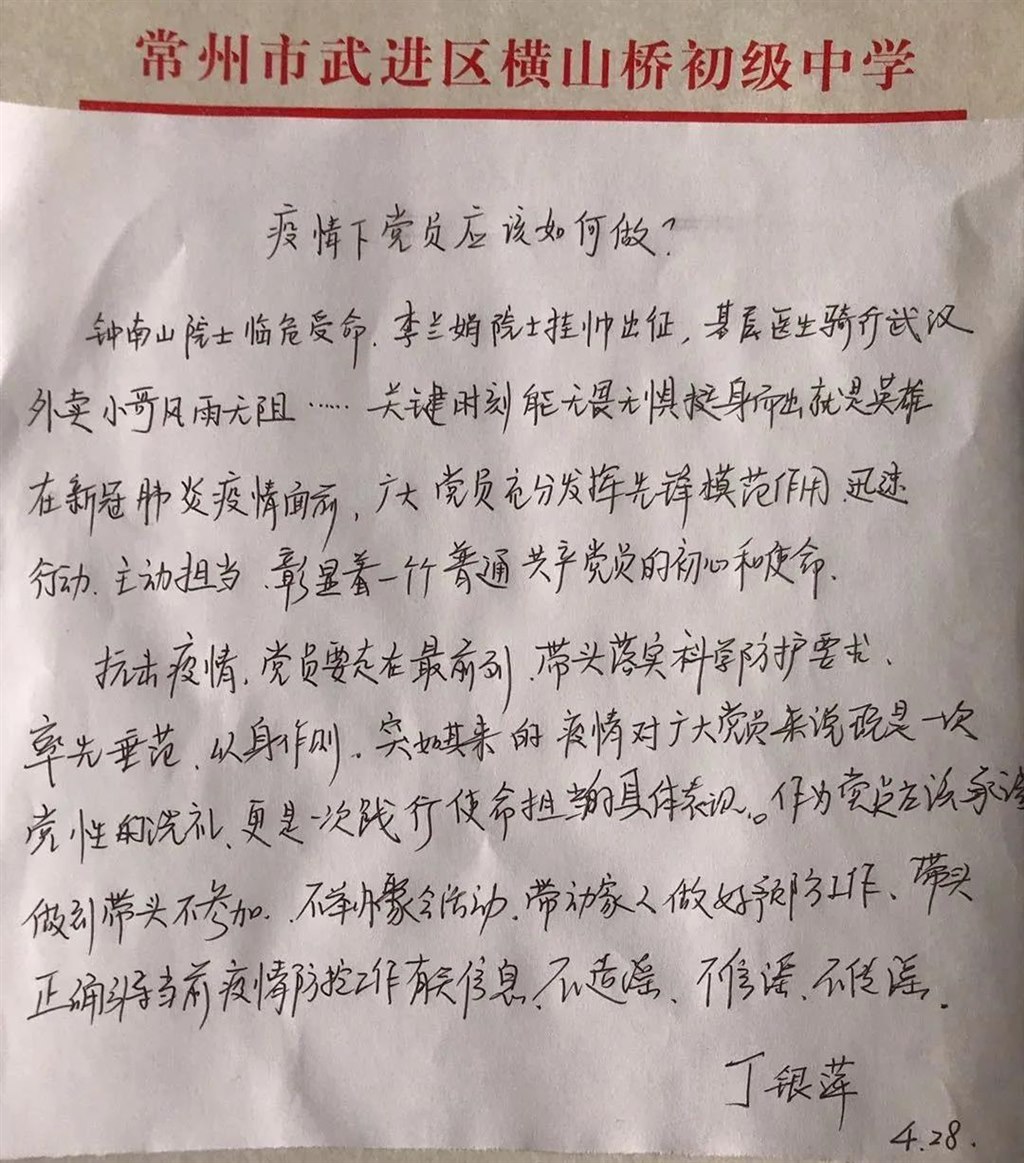 常州市武进区横山桥初级中学
疫情下党员应该如何做?
钟南山院士临危受命.李兰娟院士挂帅出征,基层医生骑行武汉
外卖小哥风雨无阻……关键时刻能无畏无惧挺身而出就是英雄
在新冠肺炎疫情面前,广大党员充分发挥先锋模范作用.迅速
行动.主动担当.彰显着一个普通共产党员的初心和使命.
抗击疫情.党员要走在最前列.带头落实科学防护要求、
率先垂范.以身作则.突如其来的疫情对广大党员来说既是一次
党性的洗礼、更是一次践行使命担当的具体表现。作为党员应该
做到带头不参加.不举办聚会活动.带动家人做好预防工作、带头
正确当前疫情防控工作有关信息.不造谣、不信谣、不传谣.
丁银萍
4.28.